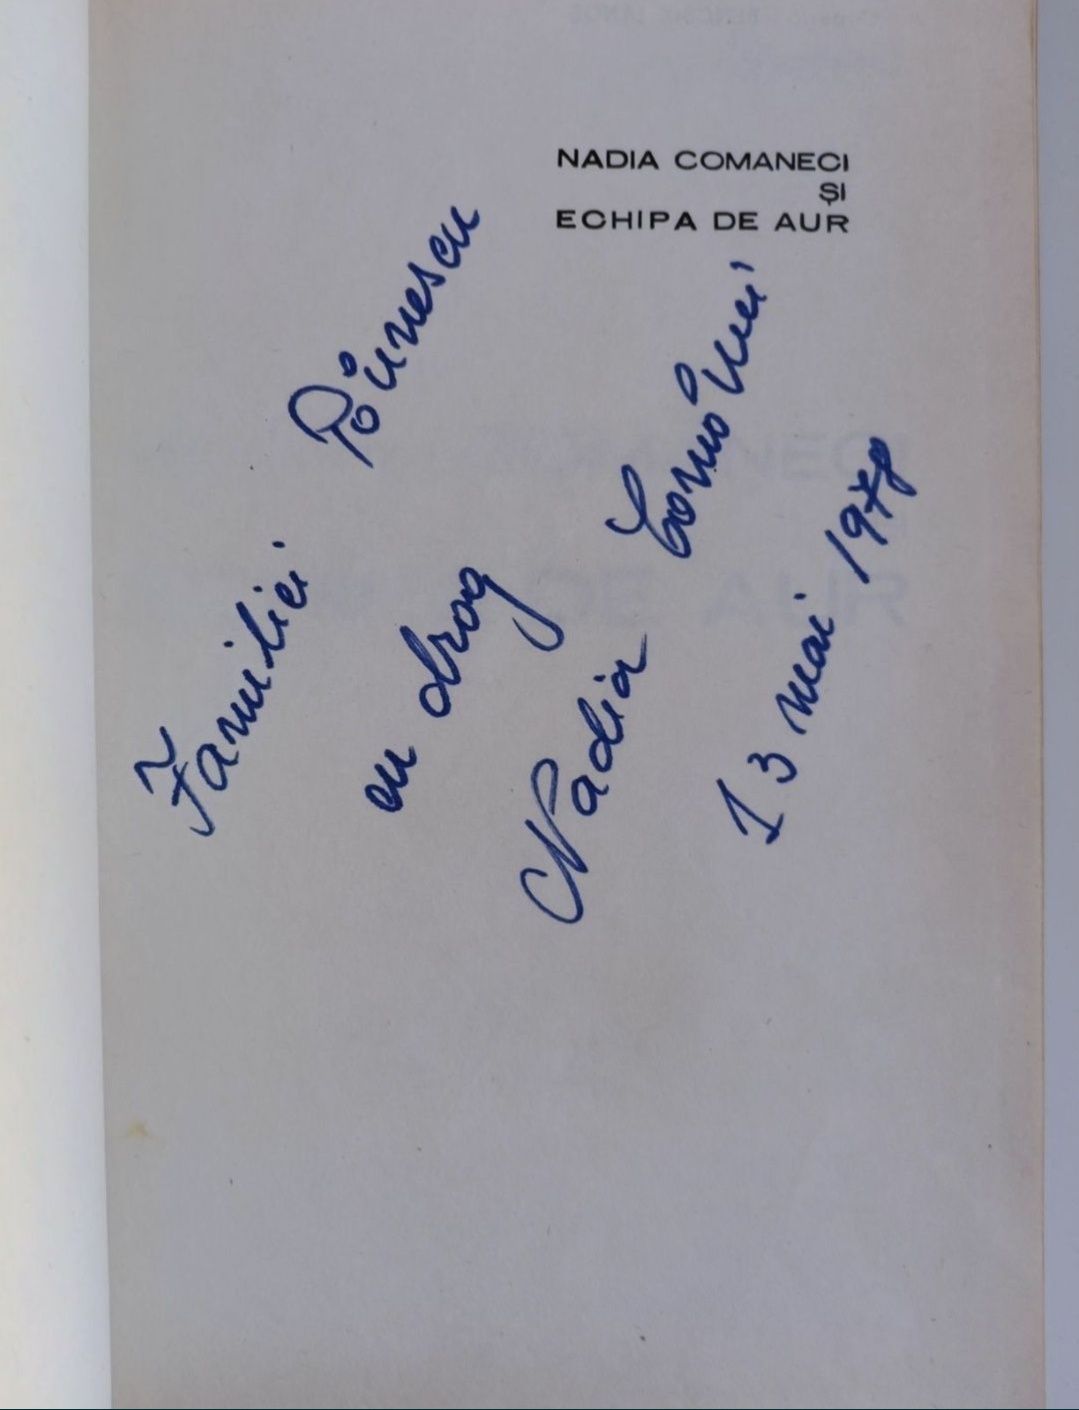 NADIA COMANECI
ȘI
ECHIPA DE AUR
Familiei Păunescu
cu drag
Nadia Comăneci
13 mai 1978